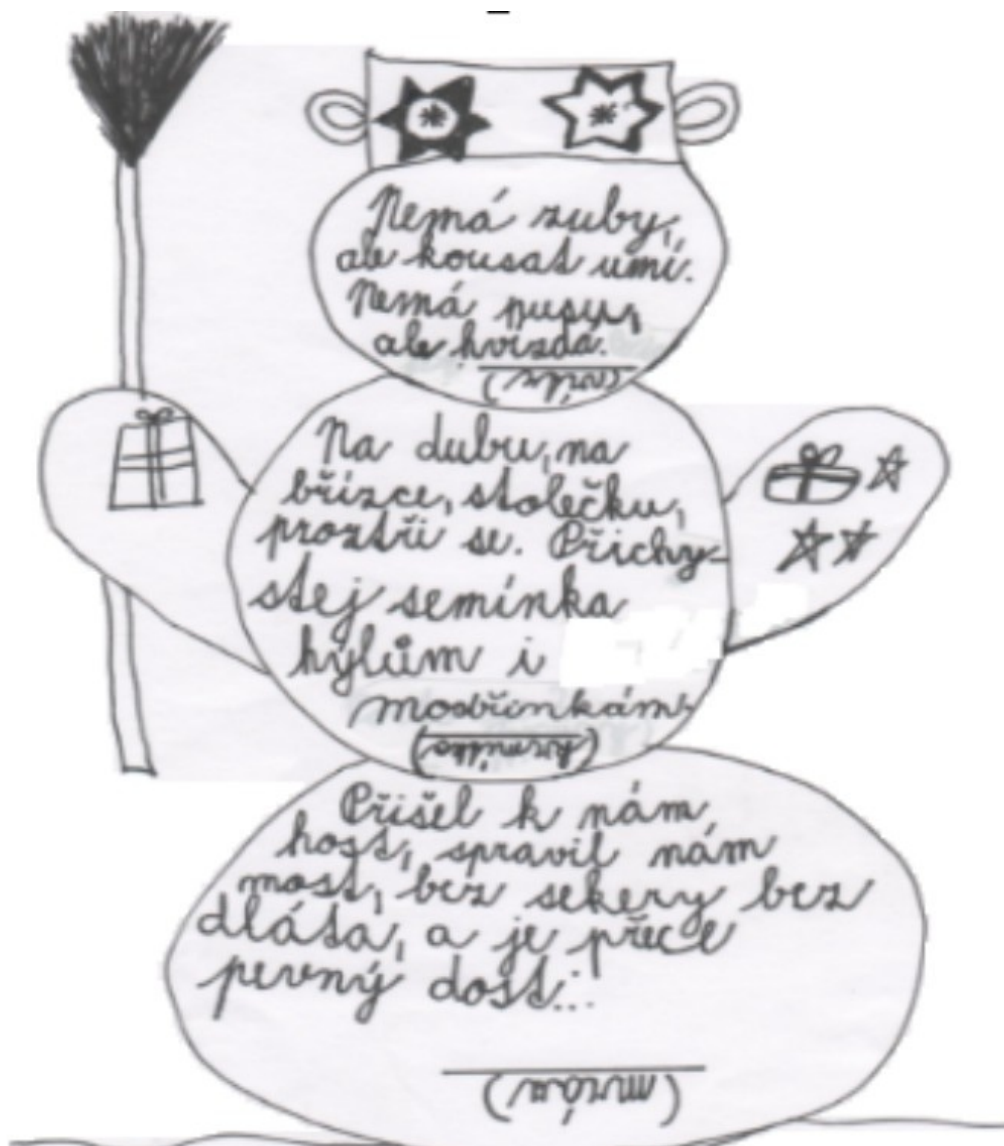 Nemá zuby,
ale kousat umí.
Nemá pusu,
ale hvízdá.
Na dubu, na
břízce, stolečku,
prostři se. Přichy-
stej semínka
hýlům i

(krmítko)
Přišel k nám
host, spravil nám
most, bez sekery bez
dláta, a je přece
pevný dost...
(mráz)